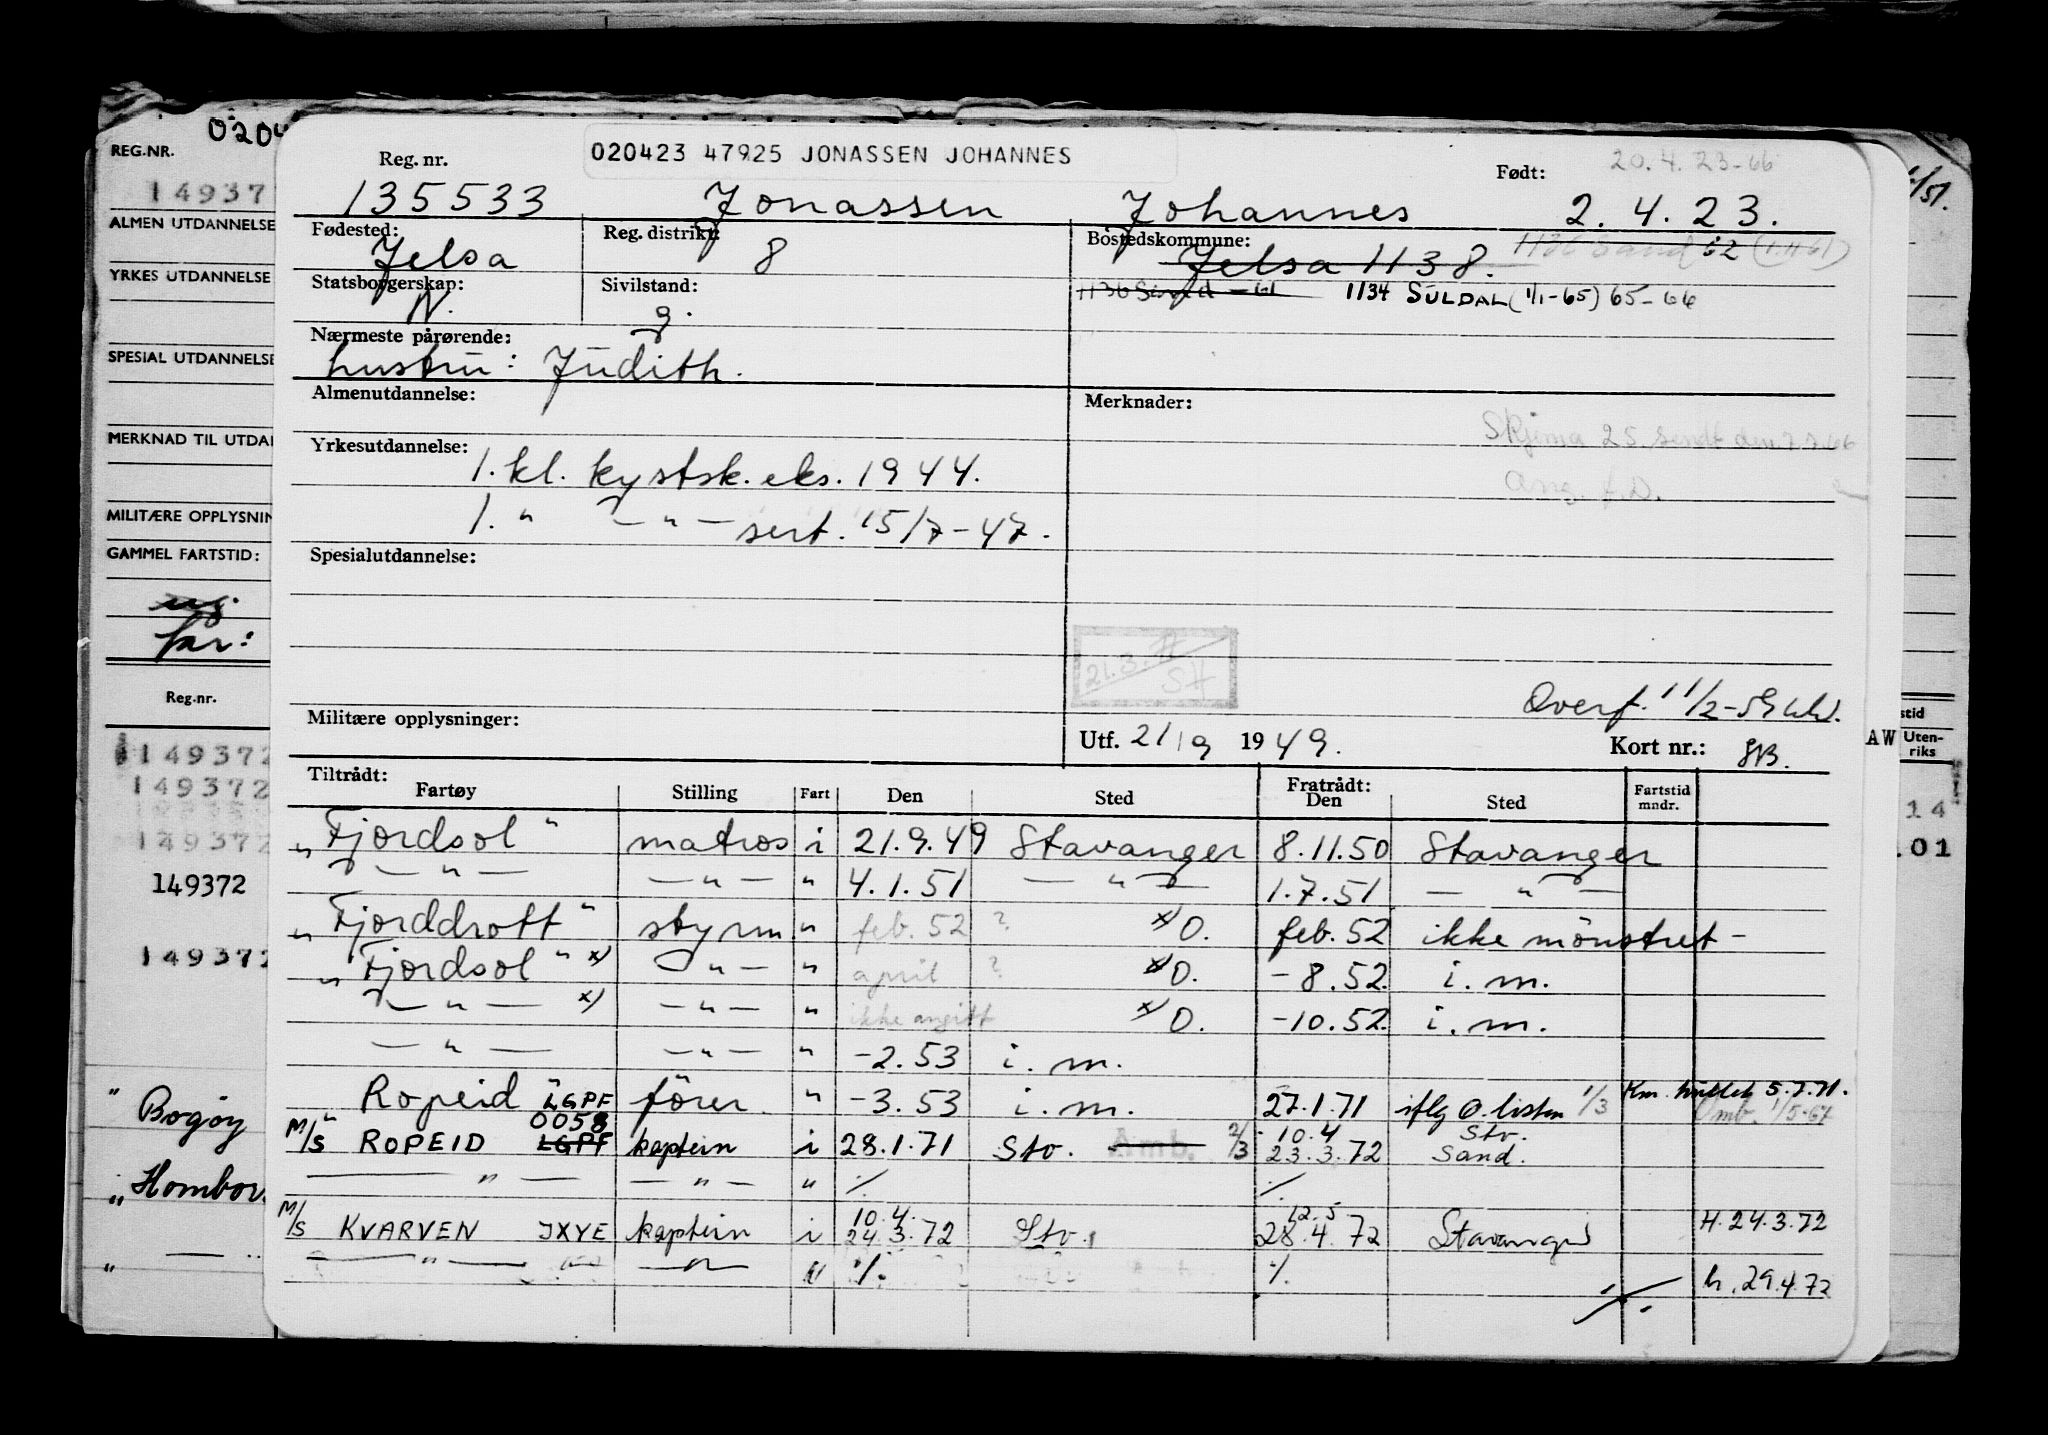 0204
REG.NR.
14937
ALMEN UTDANNELSE
YRKES UTDANNELSE
SPESIAL UTDANNELSE
MERKNAD TIL UTDAN
MILITÆRE OPPLYSNIN
GAMMEL FARTSTID:
før:
Reg.nr.
149372
149372
149372
149372
149372
" Bogøy
" Hombor
— "
"
020423 47925 JONASSEN JOHANNES
Reg. nr. Født: 20.4.23-66
135533 Jonassen Johannes 2.4.23.
Fødested: Reg. distrikt: Bostedskommune:
Jelsa 8 Jelsa 1138. 1136 Sand 62 (1.1161)
Statsborgerskap: Sivilstand: 1136 Sand -61 1134 SULDAL (1/1-65) 65-66
N. g.
Nærmeste pårørende:
hustru: Judith.
Almenutdannelse: Merknader:
Skjema 25 sendt den 7.7.66
Ang. f.D.
Yrkesutdannelse:
1. kl. kystsk. eks. 1944.
1. " — " — sert. 15/7-47.
Spesialutdannelse:
21.3.77
SH
Overf. 11/2-59
Militære opplysninger: Utf. 21/9 1949. Kort nr.:
Tiltrådt: Fratrådt:
Fartøy Stilling Fart Den Sted Den Sted Fartstid mndr.
"Fjordsol" matros i 21.9.49 Stavanger 8.11.50 Stavanger
— " — — " — " 4.1.51 — " — 1.7.51 — " —
"Fjorddrott" styrm. " feb. 52 ? x) O. feb. 52 ikke mönstret -
"Fjordsol" x) — " — " april ? x) O. - 8.52. i. m.
— " — x) — " — " ikke angitt x) O. -10.52. i. m.
— " — — " — " -2.53 i. m.
" Ropeid " LGPF förer. " -3.53 i. m. 27.1.71 iflg O. listen 1/3 Km. hullet 5.7.71.
Omb. 1/5-67
0058
M/S ROPEID LGPF kaptein i 28.1.71 Stv. Amb. 2/3 10.4 23.3.72 Stv. Sand.
— " — — " — " ./. ./.
M/S KVARVEN JXYE kaptein i 10.4. 24.3.72 Stv. 12.5 28.4.72 Stavanger H. 24.3.72
— " — — " — " ./. ./. h. 29.4.72
./.
1/51.
stid
AW Uten-
riks
14
.01